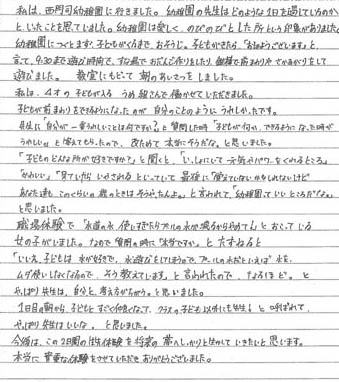 私は、西門司幼稚園に行きました。幼稚園の先生はどのような1日を過しているのか
といったことを思ていました。幼稚園は楽しく、のびのびとした所という印象がありました。
幼稚園につくとまず、子どもがくるまで、おそうじ。子どもがきたら、「おはようございます。」と
言って、9:30まで遊ぶ時間で、すな場でおだんご作りをしたり、
遊びました。 教室にもどって朝のあいさつをしました。
私は、4才の子どもがいる うめ組さんで働かせていただきました。
子どもが前まわりをできるようになったのが 自分のことのようにうれしかったです。
先生に「自分が一番うれしいことは何ですか」と質問した時「子どもが何か、できるようになった時が
うれしい。」と答えてもらったので、改ためて本当にそうだな。と思いました。
「子どものどんな所が好きですか?」と聞くと、「いっしょにして元気やパワーをくれるところ。」
「かわいい」「見ていたら いやされる」といっていて最後に「覚えていないかもしれないけど
あなた達も、このくらいの歳のときはそうやったんよ。」と言われて、「幼稚園っていいところだな。」
と思いました。
職場体験で「水道の水 使いすぎたらプールの水が減るからやめて」とおこっている
女の子がいました。なので質問の時に「本当ですか。」とたずねると
「いいえ、子どもは水が好きで、水遊びをしてしまうので、プールの水だといえば水を、
ムダ使いしなくなるので、そう教えています。」と言われたので、なるほど。と
やっぱり先生は、自分と、考え方がちがう。と思いました。
1日目の朝から、子どもとすごく仲良くなって、クラスの子ども以外にも先生!と呼ばれて、
やっぱり先生はいいな。と思いました。
今後は、この2日間の体験を将来の夢へしっかりと生かしていきたいと思います。
本当に貴重な体験をさせていただき ありがとうございました。